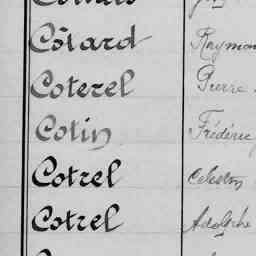 Côtard Raymon
Coterel Pierre
Cotin Frédéric
Cotrel Celestin
Cotrel Adolphe